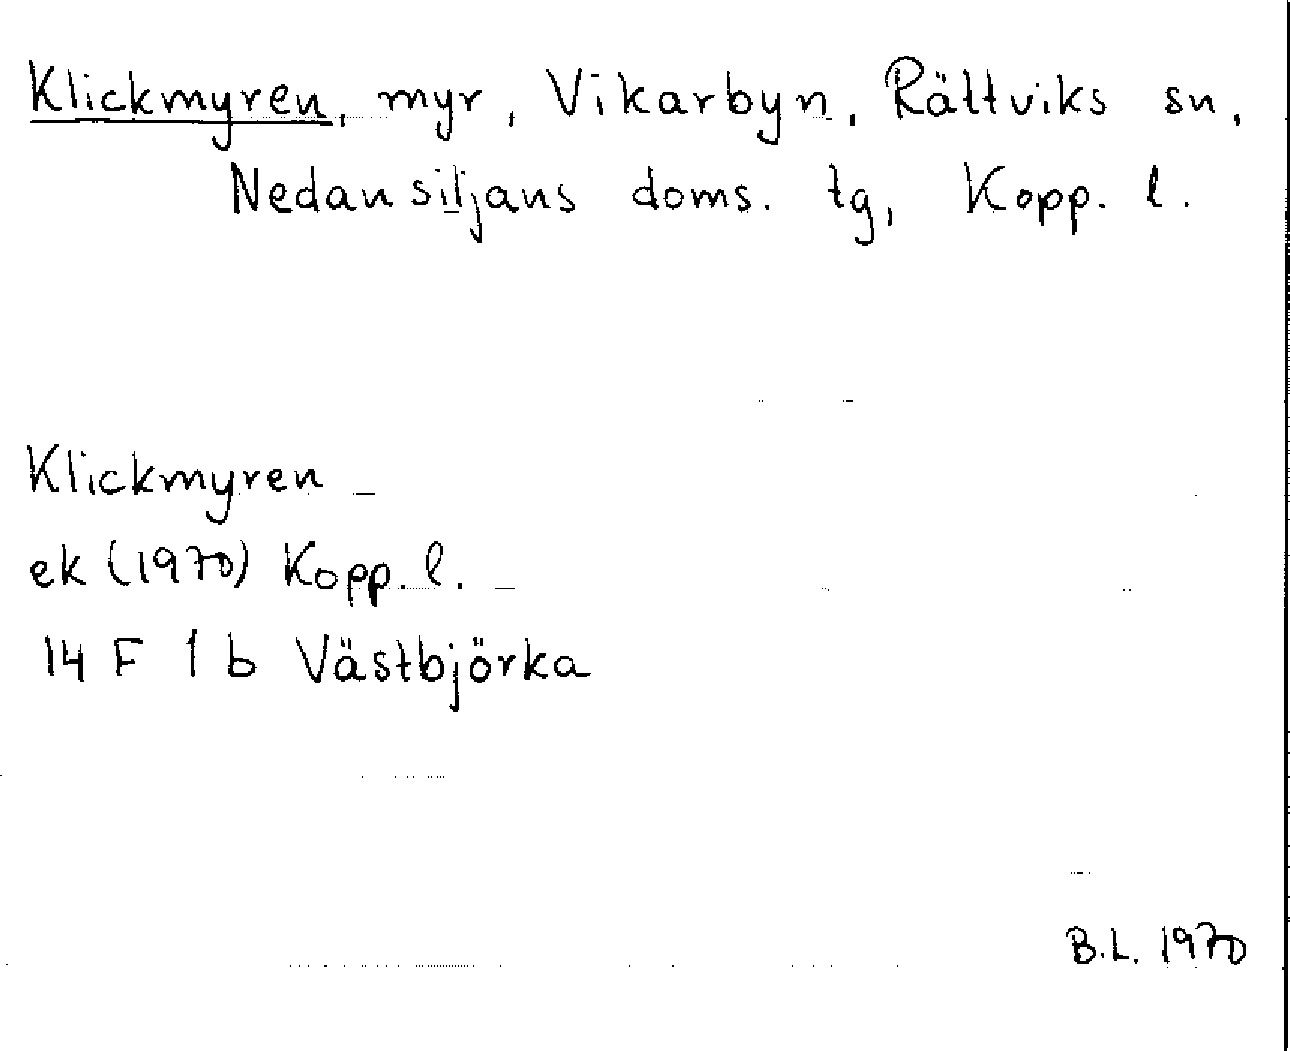 Klickmyren, myr, Vikarbyn, Rättviks sn,
Nedansiljans doms. tg, Kopp. l.
Klickmyren
ek (1970) Kopp. l.
14 F 1 b Västbjörka
B.L. 1970